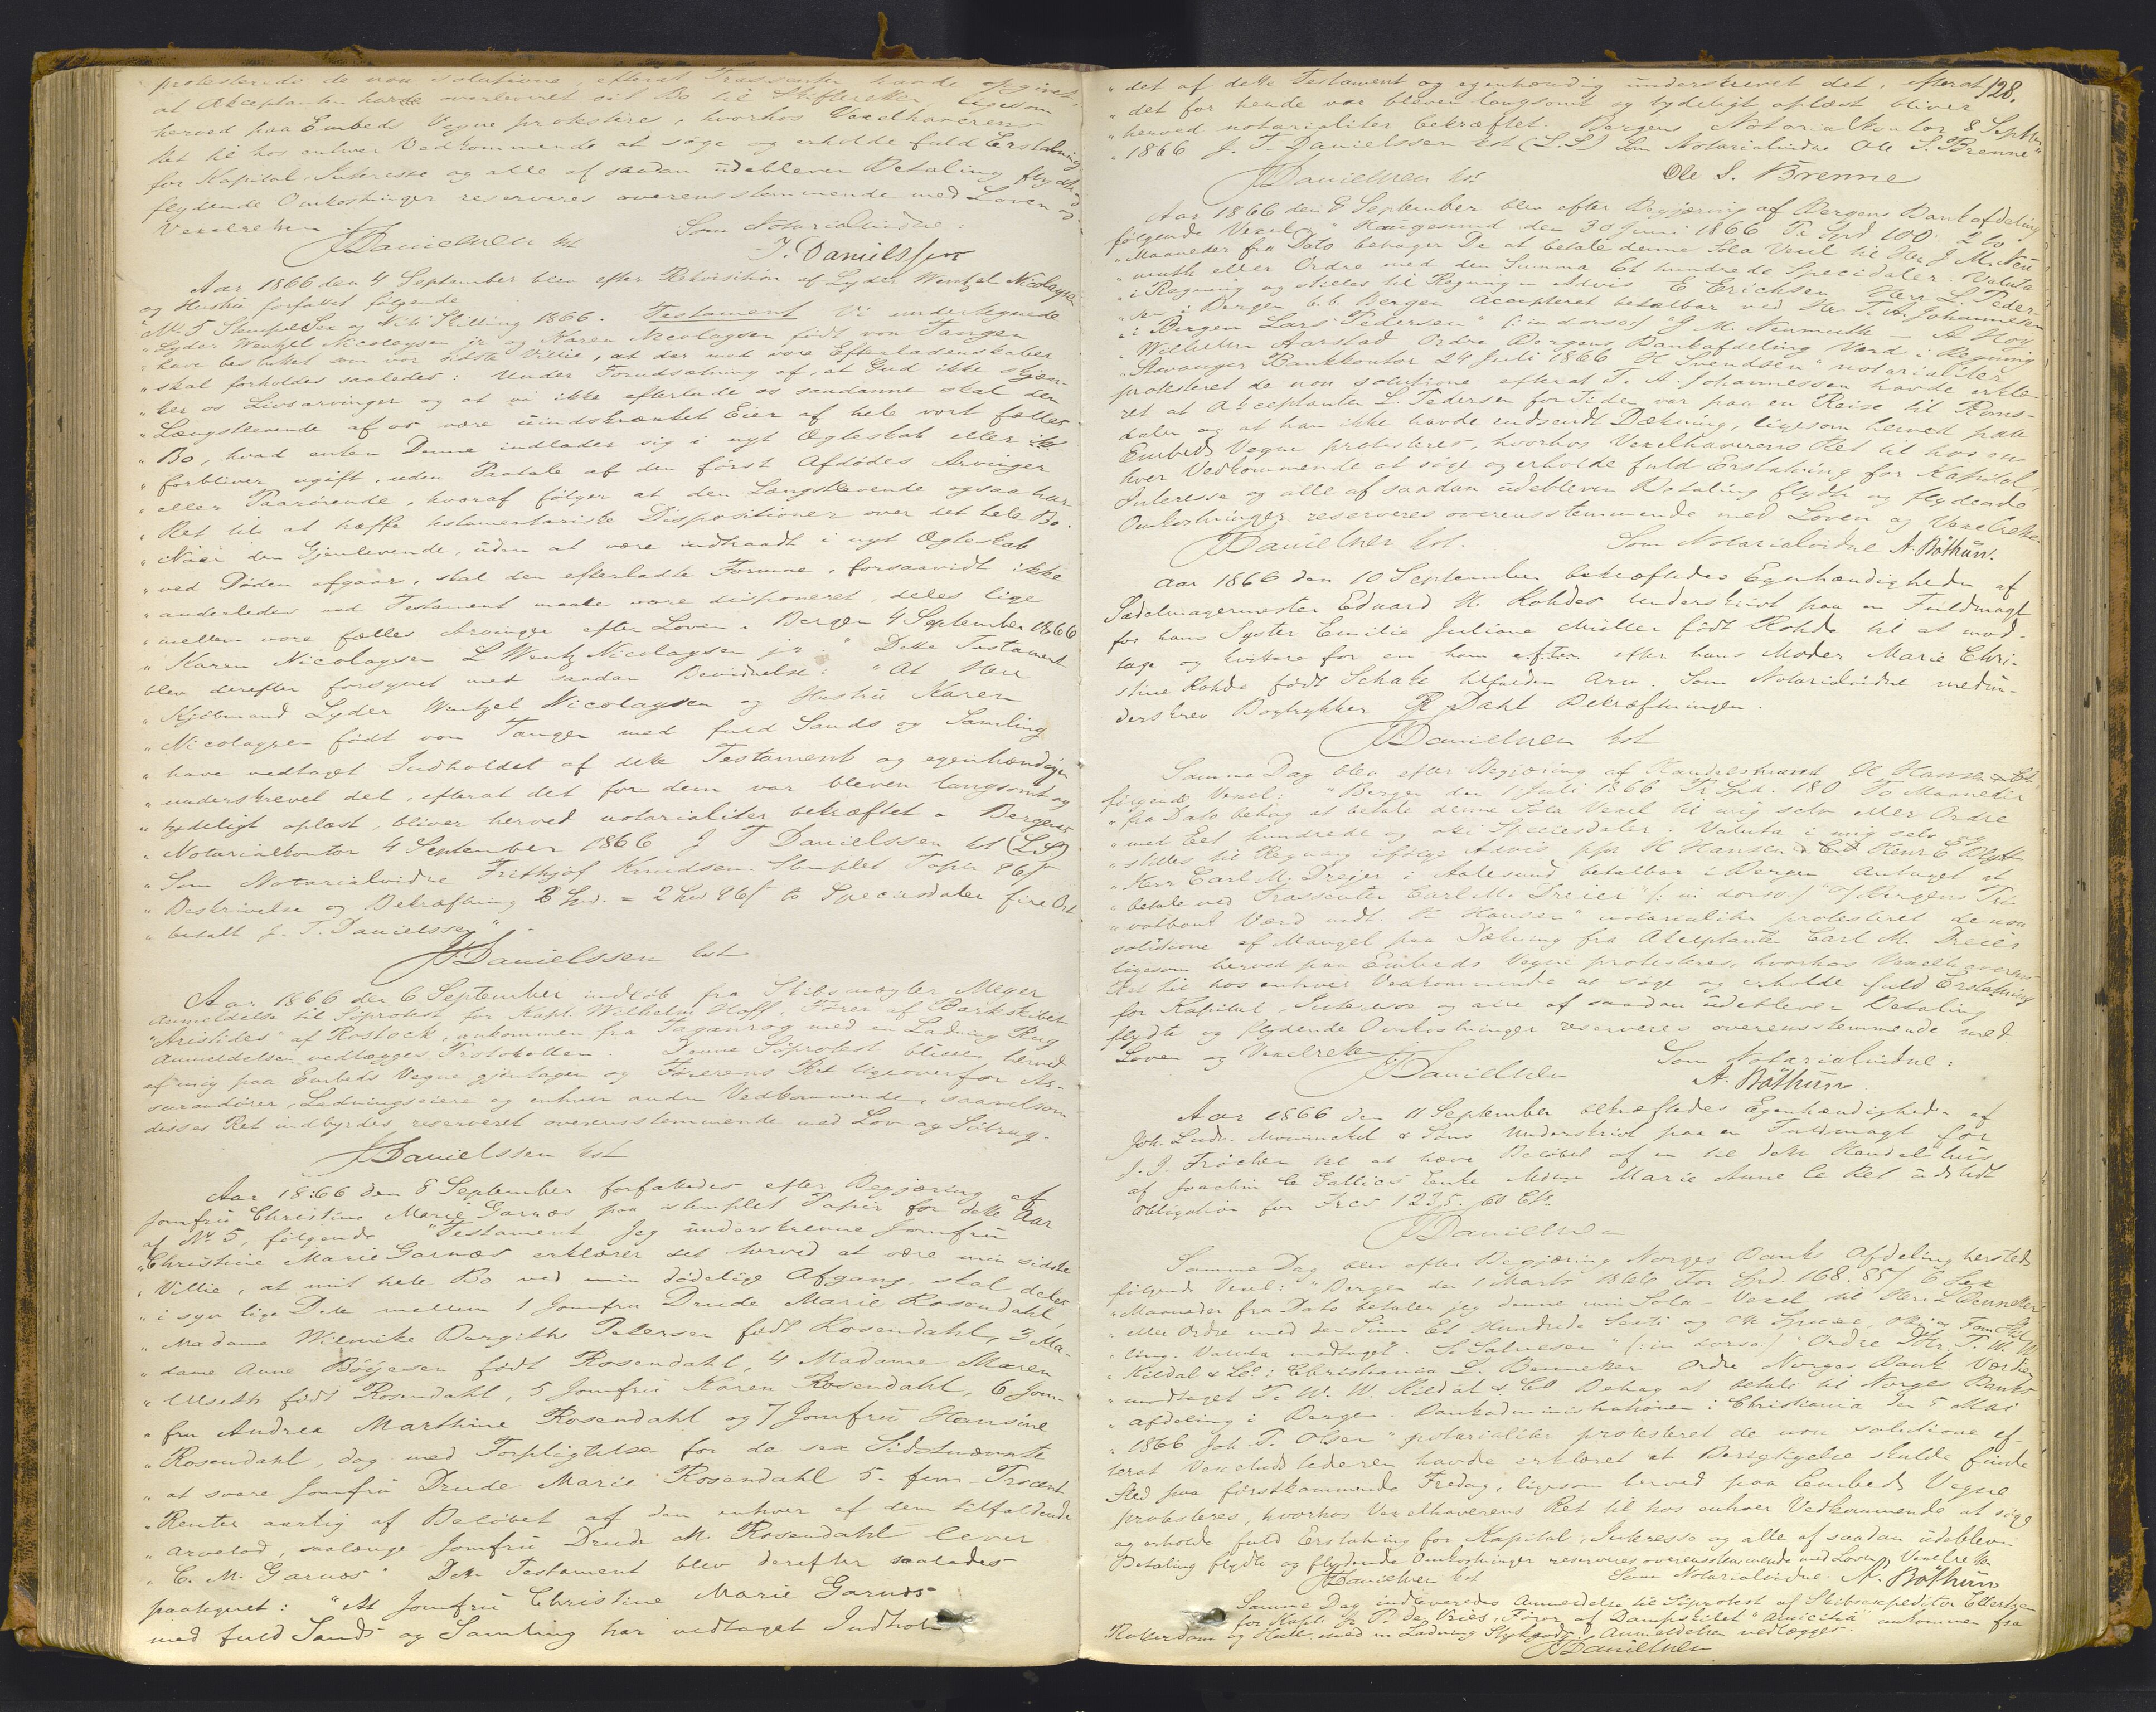 protesterede de non solutione, efterat Trassenten havde opgivet,
at Akceptanten havde overleveret sit Bo til Skifteretten, ligesom
herved paa Embeds Vegne protesteres, hvorhos Vexelhaverens
Ret til hos enhver Vedkommende at søge og erholde fuld Erstatning
for Kapital, Interesse og alle af saadan udebleven Betaling flydte og
flydende Omkostninger reserveres overensstemmende med Loven og
Vexelretten
Som Notarialvidne:
JTDanielssen kst
J. Danielssen
Aar 1866 den 4 September blev efter Rekvisition af Lyder Wentzel Nicolaysen
og Hustru forfattet følgende
"No 5 Stempel Sex og Niti Skilling 1866. Testament Vi undertegnede
"Lyder Wentzel Nicolaysen jr og Karen Nicolaysen født von Tangen
"have besluttet som vor sidste Villie, at der med vore Efterladenskaber
"skal forholdes saaledes: Under Forudsætning af, at Gud ikke skjæn-
"ker os Livsarvinger og at vi ikke efterlade os saadanne skal den
"Længstlevende af os være uindskrænket Eier af hele vort fælles
"Bo, hvad enten Denne indlader sig i nyt Ægteskab eller
"forbliver ugift, uden Paatale af den først Afdødes Arvinger
"eller Paarørende, hvoraf følger at den Længstlevende ogsaa har
"Ret til at træffe testamentariske Dispositioner over det hele Bo.
"Naar den Gjenlevende, uden at være indtraadt i nyt Ægteskab
"ved Døden afgaar, skal den efterladte Formue, forsaavidt ikke
"anderledes ved Testament maatte være disponeret, deles lige
"mellem vore fælles Arvinger efter Loven. Bergen 4 September 1866
"Karen Nicolaysen L Wentz Nicolaysen jr." Dette Testament
blev derefter forsynet med saadan Bevidnelse: "At Herr
"Kjøbmand Lyder Wentzel Nicolaysen og Hustru Karen
"Nicolaysen født von Tangen med fuld Sands og Samling
"have vedtaget Indholdet af dette Testament og egenhændigen
"underskrevet det, efterat det for dem var bleven langsomt og
"tydeligt oplæst, bliver herved notarialiter bekræftet. Bergens
"Notarialkontor 4 September 1866 J T Danielssen kst (L.S.)
"Som Notarialvidne Frithjof Knudsen. Stemplet Papir 96 ſ
"Beskrivelse og Bekræftning 2 Spd. = 2 Spd 96 ſ to Speciesdaler fire Ort
"betalt J. T. Danielssen"
JTDanielssen kst
Aar 1866 den 6 September indløb fra Skibsmægler Meyer
Anmeldelse til Søprotest for Kapt. Wilhelm Hoff, Fører af Barkskibet
"Aristides" af Rostock, ankommen fra Taganrog med en Ladning Rug
Anmeldelsen vedlægges Protokollen. Denne Søprotest bliver herved
af mig paa Embeds Vegne gjentagen og Førerens Ret ligeoverfor As-
surandører, Ladningseiere og enhver anden Vedkommende, saavelsom
disses Ret indbyrdes reserveret overensstemmende med Lov og Søbrug.
JTDanielssen kst
Aar 1866 den 8 September forfattedes efter Begjæring af
Jomfru Christine Marie Garnæs paa stemplet Papir for dette Aar
af No 5, følgende "Testament Jeg underskrevne Jomfru
"Christine Marie Garnæs erklærer det herved at være min sidste
"Villie, at mit hele Bo ved min dødelige Afgang, skal deles
"i syv lige Dele mellem 1 Jomfru Drude Marie Rosendahl,
"Madame Wilmike Bergithe Petersen født Rosendahl, 3 Ma-
"dame Anne Böyesen født Rosendahl, 4 Madame Maren
"Ulseth født Rosendahl, 5 Jomfru Karen Rosendahl, 6 Jom-
"fru Andrea Marthine Rosendahl og 7 Jomfru Hansine
"Rosendahl, dog med Forpligtelse for de sex Sidstnævnte
"at svare Jomfru Drude Marie Rosendahl 5. fem Procent
"Renter aarlig af Beløbet af den enhver af dem tilfaldende
"Arvelod, saalænge Jomfru Drude M. Rosendahl lever
"C. M. Garnæs" Dette Testament blev derefter saaledes
paategnet: "At Jomfru Christine Marie Garnæs
med fuld Sands og Samling har vedtaget Indhol-
128.
"det af dette Testament og egenhændig underskrevet det, efterat
"det for hende var bleven langsomt og tydeligt oplæst bliver
"herved notarialiter bekræftet. Bergens Notarialkontor 8 Septbr
"1866 J. T. Danielssen kst (L.S.) Som Notarialvidne Ole S. Brenne"
JTDanielssen kst
Ole S. Brenne
Aar 1866 den 8 September blev efter Begjæring af Bergens Bankafdeling
følgende Vexel: "Haugesund den 30 Juni 1866 Pr Spd 100. 2 to
"Maaneder fra Dato behager De at betale denne Sola Vexel til Hr. J. M. Neu
"muth eller Ordre med den Summa Et hundrede Speciedaler Valuta
"i Regning og stilles til Regning Advis E Erichsen Herr L. Peder-
"sen i Bergen b.b. Bergen Accepteret betalbar ved Hr. T. A. Johannesen
"i Bergen Lars Pedersen" (: in dorso:) "J M. Neumuth A Hoy
"Wilhelm Aarstad Ordre Bergens Bankafdeling Værd i Regning
"Stavanger Bankkontor 24 Juli 1866 H Svendsen" notarialiter
protesteret de non solutione efterat T. A. Johannessen havde erklæ-
ret at Akceptanten L. Pedersen for Tiden var paa en Reise til Roms-
dalen og at han ikke havde indsendt Dækning, ligesom herved paa
Embeds Vegne protesteres, hvorhos Vexelhaverens Ret til hos en-
hver Vedkommende at søge og erholde fuld Erstatning for Kapital,
Interesse og alle af saadan udebleven Betaling flydte og flydende
Omkostninger reserveres overensstemmende med Loven og Vexelretten
JTDanielssen kst.
Som Notarialvidne A. Böthun.
Aar 1866 den 10 September bekræftedes Egenhændigheden af
Sadelmagermester Eduard H. Rohdes Underskrivt paa en Fuldmagt
for hans Syster Emilie Juliane Müller født Rohde til at mod-
tage og kvittere for en ham efter hans Moder Marie Chri-
stine Rohde født Schatt tilfalden Arv. Som Notarialvidne medun-
derskrev Bogtrykker R Dahl Bekræftningen.
JTDanielssen kst
Samme Dag blev efter Begjæring af Handelshuset H Hansen & Co
følgende Vexel: "Bergen den 1 Juli 1866 Pr Spd. 180 To Maaneder
"fra Dato behag at betale denne Sola Vexel til mig selv eller Ordre
"med Eet hundrede og oti Speciesdaler. Valuta i mig selv og
"stilles til Regning ifølge Advis ppr H Hansen & Co Henr E Blytt
"Herr Carl M. Dreyer i Aalesund betalbar i Bergen Antaget at
"betale ved Trassenten Carl M. Dreier" (: in dorso:) "Bergens Pri-
"vatbank Værd mdt. H Hansen" notarialiter protesteret de non
solutione af Mangel paa Dækning fra Akceptanten Carl M. Dreier
ligesom herved paa Embeds Vegne protesteres, hvorhos Vexelhaverens
Ret til hos enhver Vedkommende at søge og erholde fuld Erstatning
for Kapital, Interesse og alle af saadan udebleven Betaling
flydte og flydende Omkostninger reserveres overensstemmende med
Loven og Vexelretten
JTDanielssen
Som Notarialvidne:
A. Böthun
Aar 1866 den 11 September bekræftedes Egenhændigheden af
Joh. Ludv. Mowinckel & Søns Underskrivt paa en Fuldmagt for
J. J. Fröchen til at hæve Beløbet af en til dette Handelshuus
af Joachim le Gallics Enke Mdme Marie Anne le Ret udstedt
Obligation for Frcs 1235. 60 Cts.
JTDanielssen
Samme Dag blev efter Begjæring Norges Banks Afdeling hersteds
følgende Vexel: "Bergen den 1 Marts 1866 For Spd. 168. 85 ſ 6 Sex
"Maaneder fra Dato betaler jeg denne min Sola-Vexel til Herr L Benneker
"eller Ordre med den Sum Et Hundrede Sexti og Otte Species, Otti og Fem Skil
"ling. Valuta modtaget. S. Salvesen" (: in dorso:) "Ordre Hr. T. W. W.
"Kildal & Co i Christiania L. Benneker Ordre Norges Bank Værdie
"modtaget T. W. W. Kildal & Co Behag at betale til Norges Banks
"Afdeling i Bergen. Bankadministrationen i Christiania den 5 Mai
"1866 Joh. T. Olsen" notarialiter protesteret de non solutione ef-
terat Vexeludstederen havde erklæret at Berigtigelse skulde finde
Sted paa førstkommende Fredag, ligesom herved paa Embeds Vegne
protesteres, hvorhos Vexelhaverens Ret til hos enhver Vedkommende at søge
og erholde fuld Erstatning for Kapital, Interesse og alle af saadan udebleven
Betaling flydte og flydende Omkostninger reserveres overensstemmende med Loven Vexelretten
JTDanielssen kst
Som Notarialvidne A. Böthun
Samme Dag indleveredes Anmeldelse til Søprotest af Skibsexpeditør Ellertsen
for Kapt. P. de Vries, Fører af Dampskibet "Amicitia" ankommen fra
Rotterdam og Hull med en Ladning Stykgods. Anmeldelsen vedlægges.
JTDanielssen